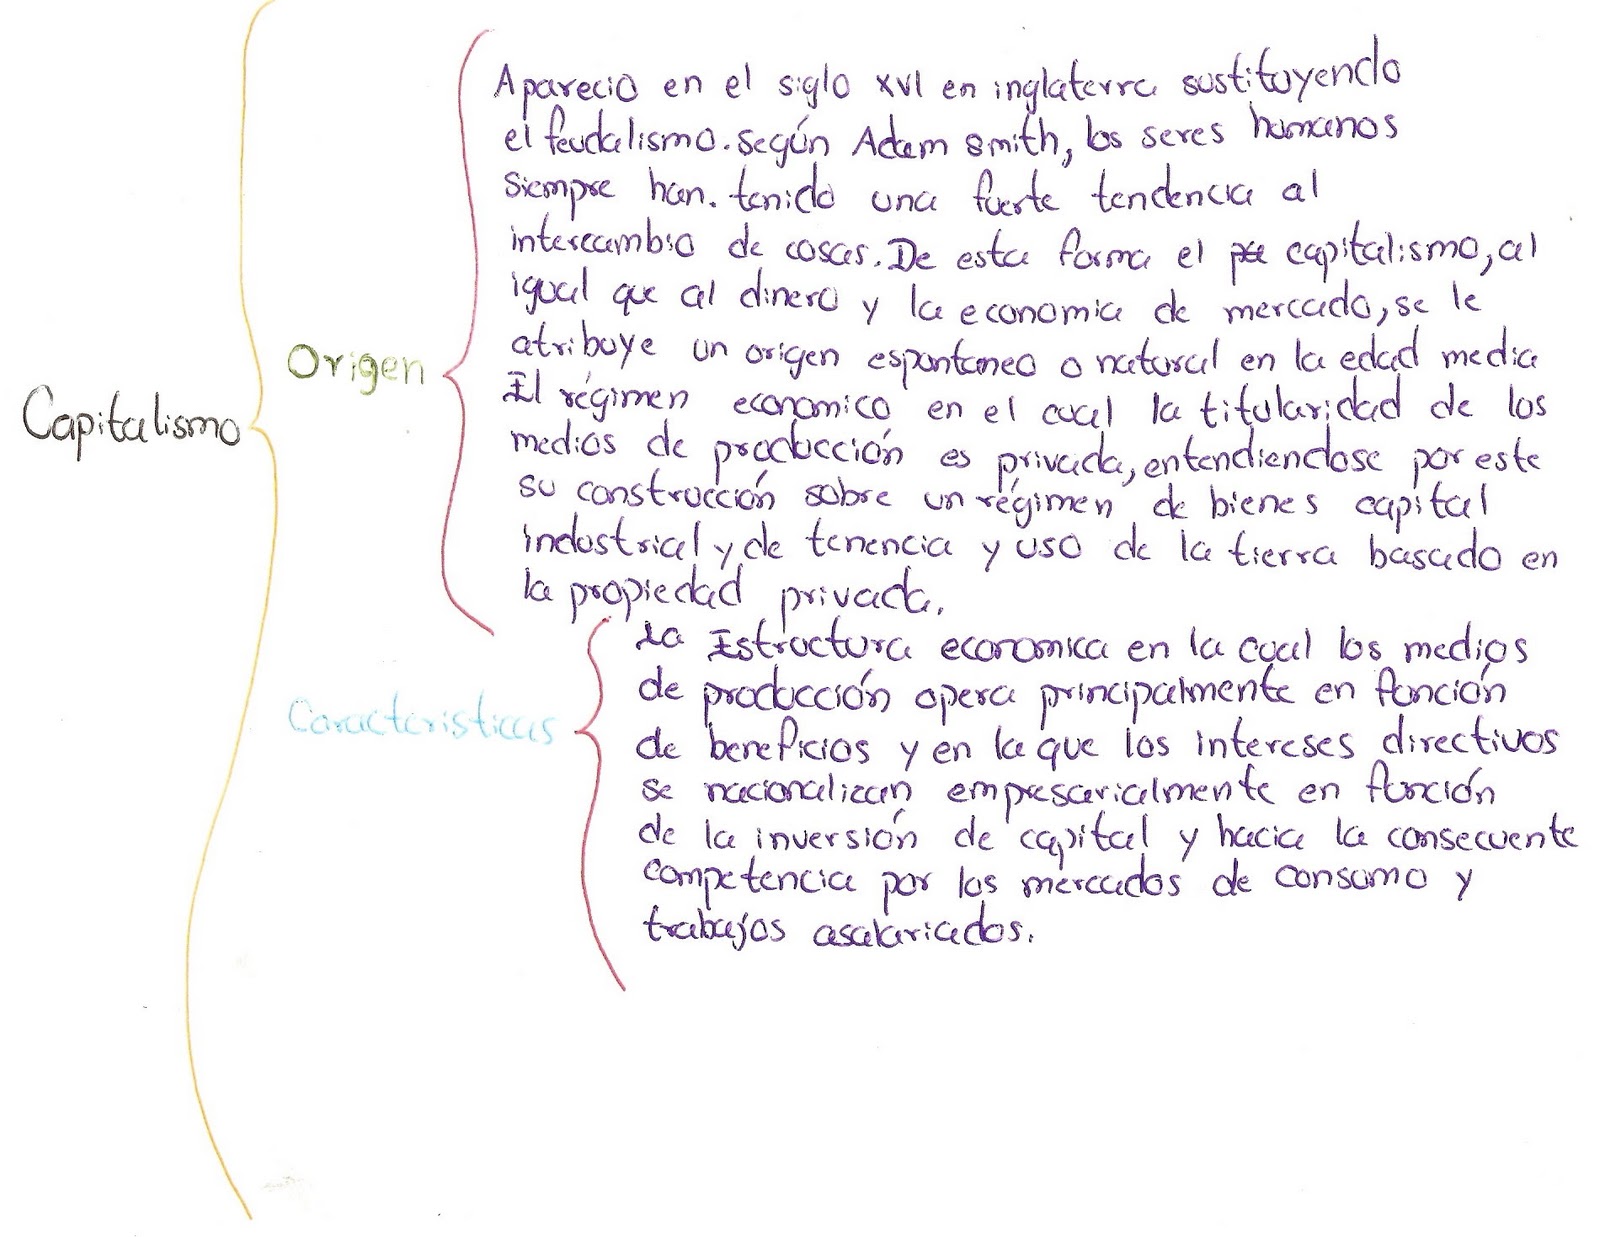 Capitalismo
Origen
Aparecio en el siglo XVI en inglaterra sustituyendo
el feudalismo. Según Adam Smith, los seres humanos
siempre han. tenido una fuerte tendencia al
intercambio de cosas. De esta forma el capitalismo, al
igual que al dinero y la economia de mercado, se le
atribuye un origen espontaneo o natural en la edad media
El régimen economico en el cual la titularidad de los
medios de producción es privada, entendiendose por este
su construcción sobre un régimen de bienes capital
industrial y de tenencia y uso de la tierra basado en
la propiedad privada.
Caracteristicas
La Estructura economica en la cual los medios
de producción opera principalmente en función
de beneficios y en la que los intereses directivos
se nacionalizan empresarialmente en función
de la inversión de capital y hacia la consecuente
competencia por los mercados de consumo y
trabajos asalariados.